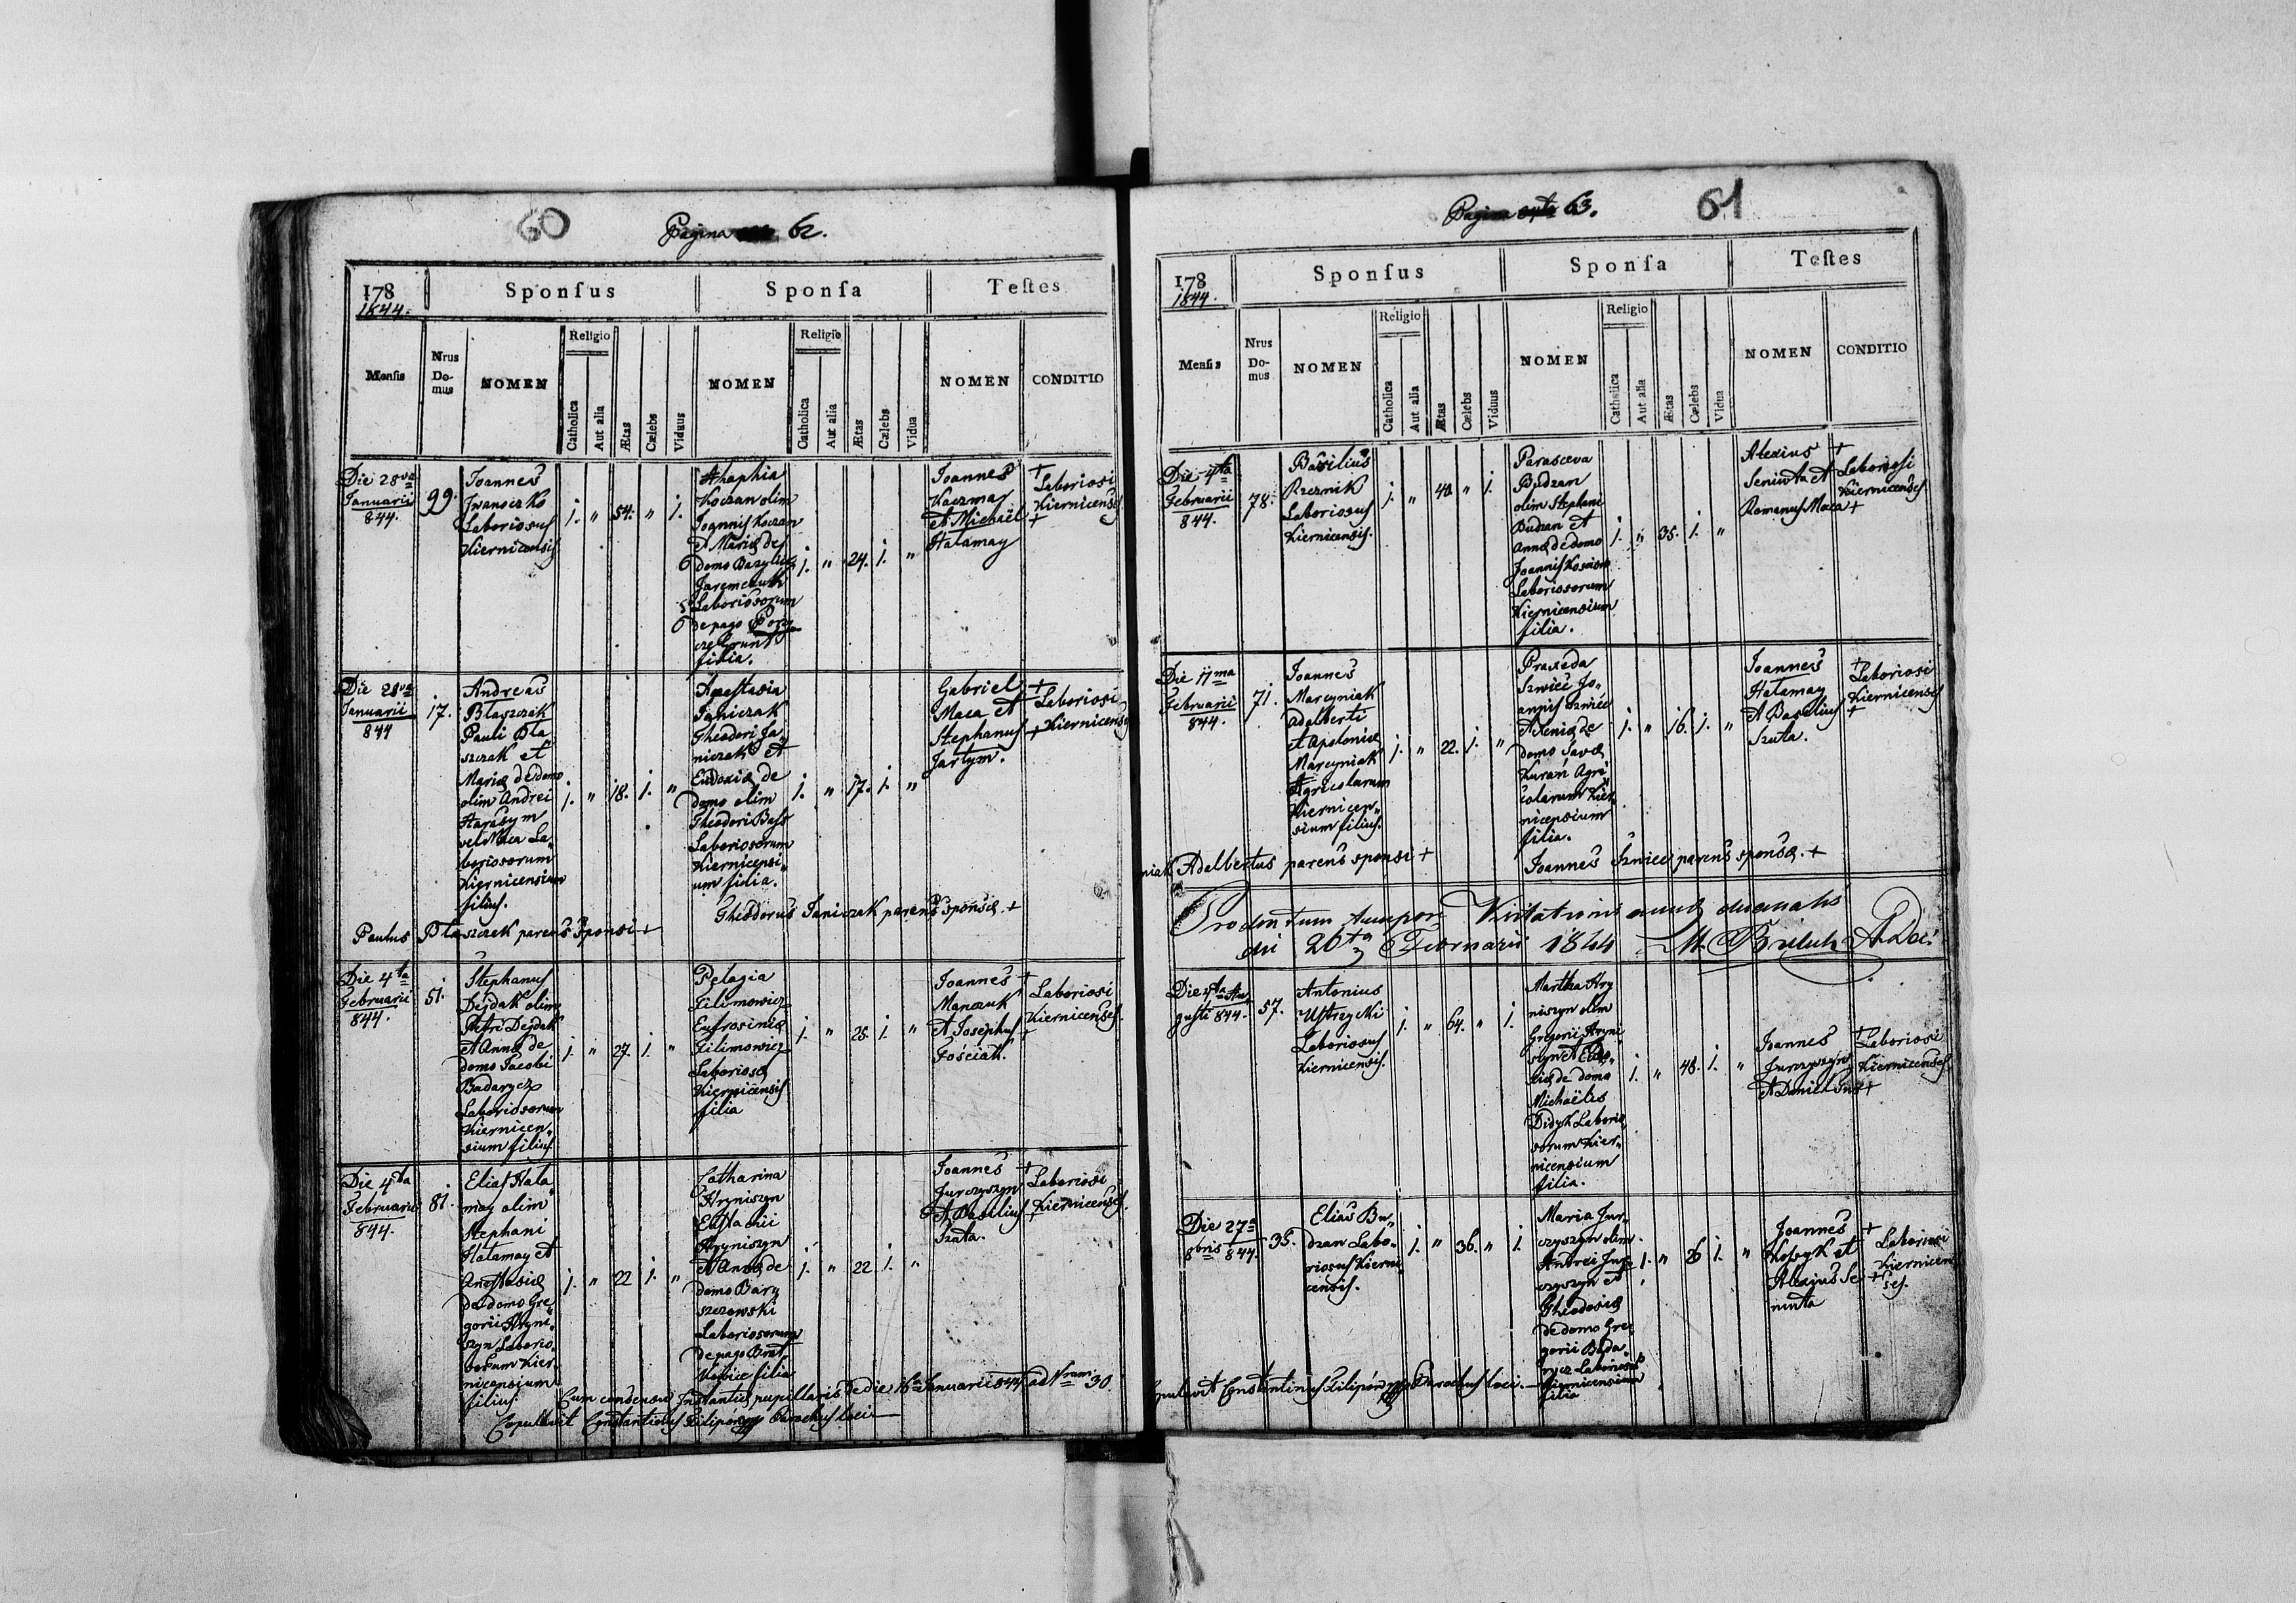 60
Pagina 62.
178
1844.
Sponsus
Sponsa
Testes
Mensis
Nrus
Do-
mus
NOMEN
Religio
Catholica
Aut alia
Ætas
Cælebs
Viduus
NOMEN
Religio
Catholica
Aut alia
Ætas
Cælebs
Vidua
NOMEN
CONDITIO
Die 28va
Januarii
844.
99.
Joannes
Iwanoczko
Laboriosus
Kiernicensis
1. " 54. " 1.
Ahaphia
Koczan olim
Joannis Koczan
et Mariæ de
domo Bazylii
Jaremczuk
Laboriosorum
de pago
filia.
1. " 24. 1. "
Joannes
Kaczmar
et Michaël
Hatamay
+
Laboriosi
Kiernicenses
+
Die 28va
Januarii
844
17.
Andreas
Błaszczak
Pauli Bła
szczak et
Mariæ de domo
olim Andrei
Harasym
vel Maca La„
boriosorum
Kiernicensium
filius.
1. " 18. 1. "
Anastasia
Janiczak
Theodori Ja„
niczak et
Eudoxiæ de
domo olim
Theodori Bass
Laboriosorum
Kiernicensi„
um filia.
1. " 17. 1. "
Gabriel
Maca et
Stephanus
Jartym.
+
Laboriosi
+ Kiernicenses
Theodorus Janiczak parens sponsæ. +
Paulus Błaszczak parens Sponsi +
Die 4ta
Februarii
844.
51.
Stephanus
Dejdak olim
Petri Dejdak
et Annæ de
domo Jacobi
Badarycz
Laboriosorum
Kiernicen„
sium filius
1. " 27. 1. "
Pelagia
Filimowicz
Eufrosiniæ
Filimowicz
Laboriosæ
Kiernicensis
filia
1. " 28. 1. "
Joannes
Manczuk
et Josephus
Fościak.
+
Laboriosi
Kiernicenses.
+
Die 4ta
Februarii
844.
81.
Elias Hata
may olim
Stephani
Hatamay et
Anastasiæ
de domo Gre„
gorii Hryni„
szyn Laborio„
sorum Kier„
nicensium
filius.
1. " 22 1. "
Catharina
Hryniszyn
Eustachii
Hryniszyn
et Annæ de
domo Bary
szczowski
Laboriosorum
de pago Brat„
kowice filia
1. " 22 1. "
Joannes
Jurczyszyn
et Basilius
Szata.
+
Laboriosi
Kiernicenses.
+
Cum consensu Instantiæ pupillaris de die 16a Januarii 844 ad Nrum 30
Copulavit Constantinus Filipów Parochus loci
61
Pagina 63.
178
1844.
Sponsus
Sponsa
Testes
Mensis
Nrus
Do-
mus
NOMEN
Religio
Catholica
Aut alia
Ætas
Cælebs
Viduus
NOMEN
Religio
Catholica
Aut alia
Ætas
Cælebs
Vidua
NOMEN
CONDITIO
Die 4ta
Februarii
844.
78.
Basilius
Rzeznik
Laboriosus
Kiernicensis.
1. " 40. " 1.
Parasceva
Budzan
olim Stephani
Budzan et
Annæ de domo
Joannis
Laboriosorum
Kiernicensium
filia.
1. " 35. 1. "
Alexius
Seniuta et
Romanus Maca
+
Laboriosi
Kiernicenses
+
Die 11ma
Februarii
844.
71.
Joannes
Marcyniak
Adalberti
et Apoloniæ
Marcyniak
Agricolarum
Kiernicen„
sium filius.
1. " 22. 1. "
Praxeda
Szwiec Jo„
annis Szwiec
et Xeniæ de
domo Savæ
Kuran Agri
colarum Kier„
nicensium
filia.
1. " 16. 1. "
Joannes
Hatamay
et Basilius
Szuta.
+
Laboriosi
Kiernicenses
+
niak Adelbertus parens sponsi +
Joannes Szwiec parens sponsæ. +
Produntum tempore Visitationis decanalis
die 26ta Februarii 1844
Die 4ta Au„
gusti 844.
57.
Antonius
Ustrzycki
Laboriosus
Kiernicensis.
1. " 64. " 1.
Martha Hry
niszyn olim
Gregorii Hryni
szyn et
de domo
Michaëlis
Didyk Laborio
sorum Kier„
nicensium
filia.
1. " 48. 1. "
Joannes
Jurczyszyn
et Daniel
+
Laboriosi
Kiernicenses
+
Die 27a
8bris 844.
35.
Elias Bu„
dzan Labo„
riosus Kierni„
censis.
1. " 36. " 1.
Maria Jur„
czyszyn olim
Andrei Jur„
czyszyn et
Theodosiæ
de domo Gre„
gorii Bada„
rycz Laboriosorum
Kiernicensium
filia
1. " 26 1. "
Joannes
Kopyk et
Alexius Se
niuta
+
Laboriosi
Kiernicen
+ ses.
Copulavit Constantinus Filipów Parochus loci.